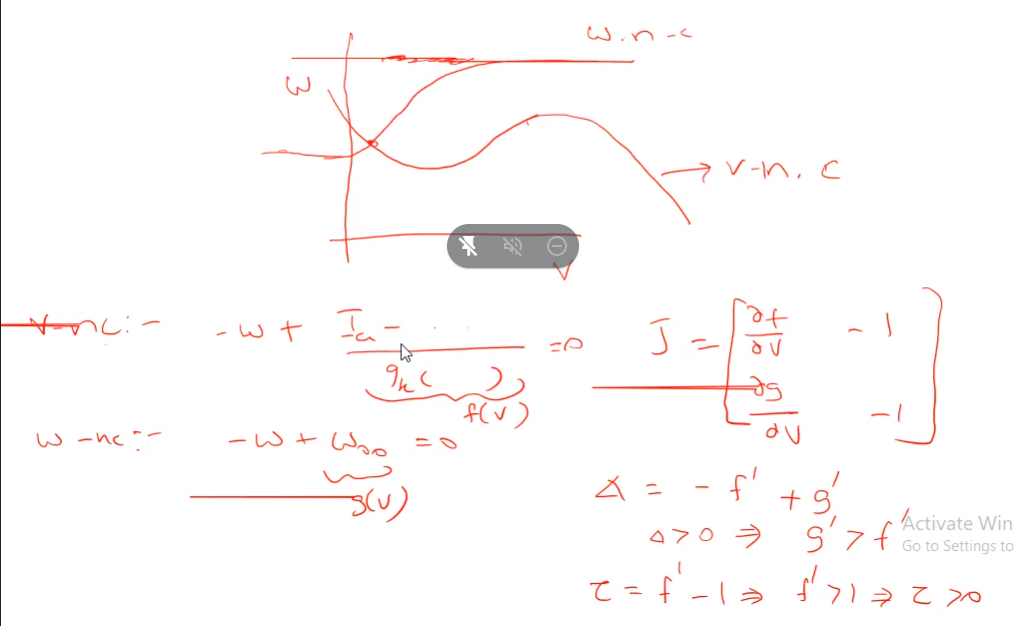 w.n-c
w
→ v-n.c
V
v-nc:- -w + Ia - ... / gk( ) = 0
f(v)
J = [ ∂f/∂V -1
∂g/∂V -1 ]
w-nc:- -w + w∞ = 0
g(v)
Δ = -f' + g'
Δ>0 ⇒ g' > f'
τ = f' - 1 ⇒ f' > 1 ⇒ τ > 0
Activate Win
Go to Settings to